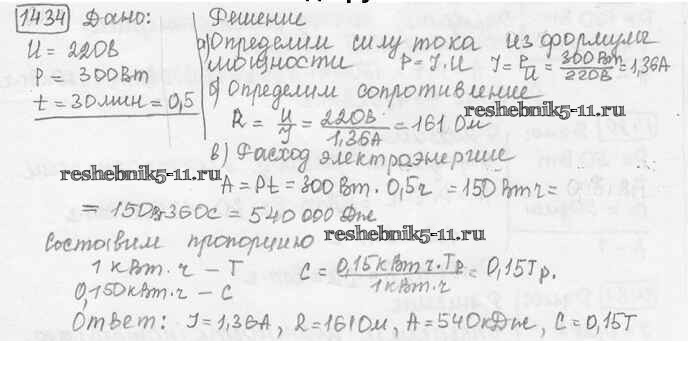 1434 Дано: Решение
U = 220В а) Определим силу тока из формулы
P = 300Вт мощности P = J.U J = P/U = 300Вт/220В = 1,36А
t = 30мин = 0,5 б) Определим сопротивление
R = U/J = 220В/1,36А = 161 Ом
reshebnik5-11.ru
в) Расход электроэнергие
reshebnik5-11.ru
A = Pt = 300 Вт. 0,5ч = 150 Втч =
= 150В·360с = 540 000 Дж
Составим пропорцию reshebnik5-11.ru
1 кВт.ч – Т C = 0,15кВтч.Тр/1кВт.ч = 0,15Тр.
0,150кВт.ч – С
Ответ: J = 1,36А, R = 161Ом, A = 540кДж, C = 0,15Т